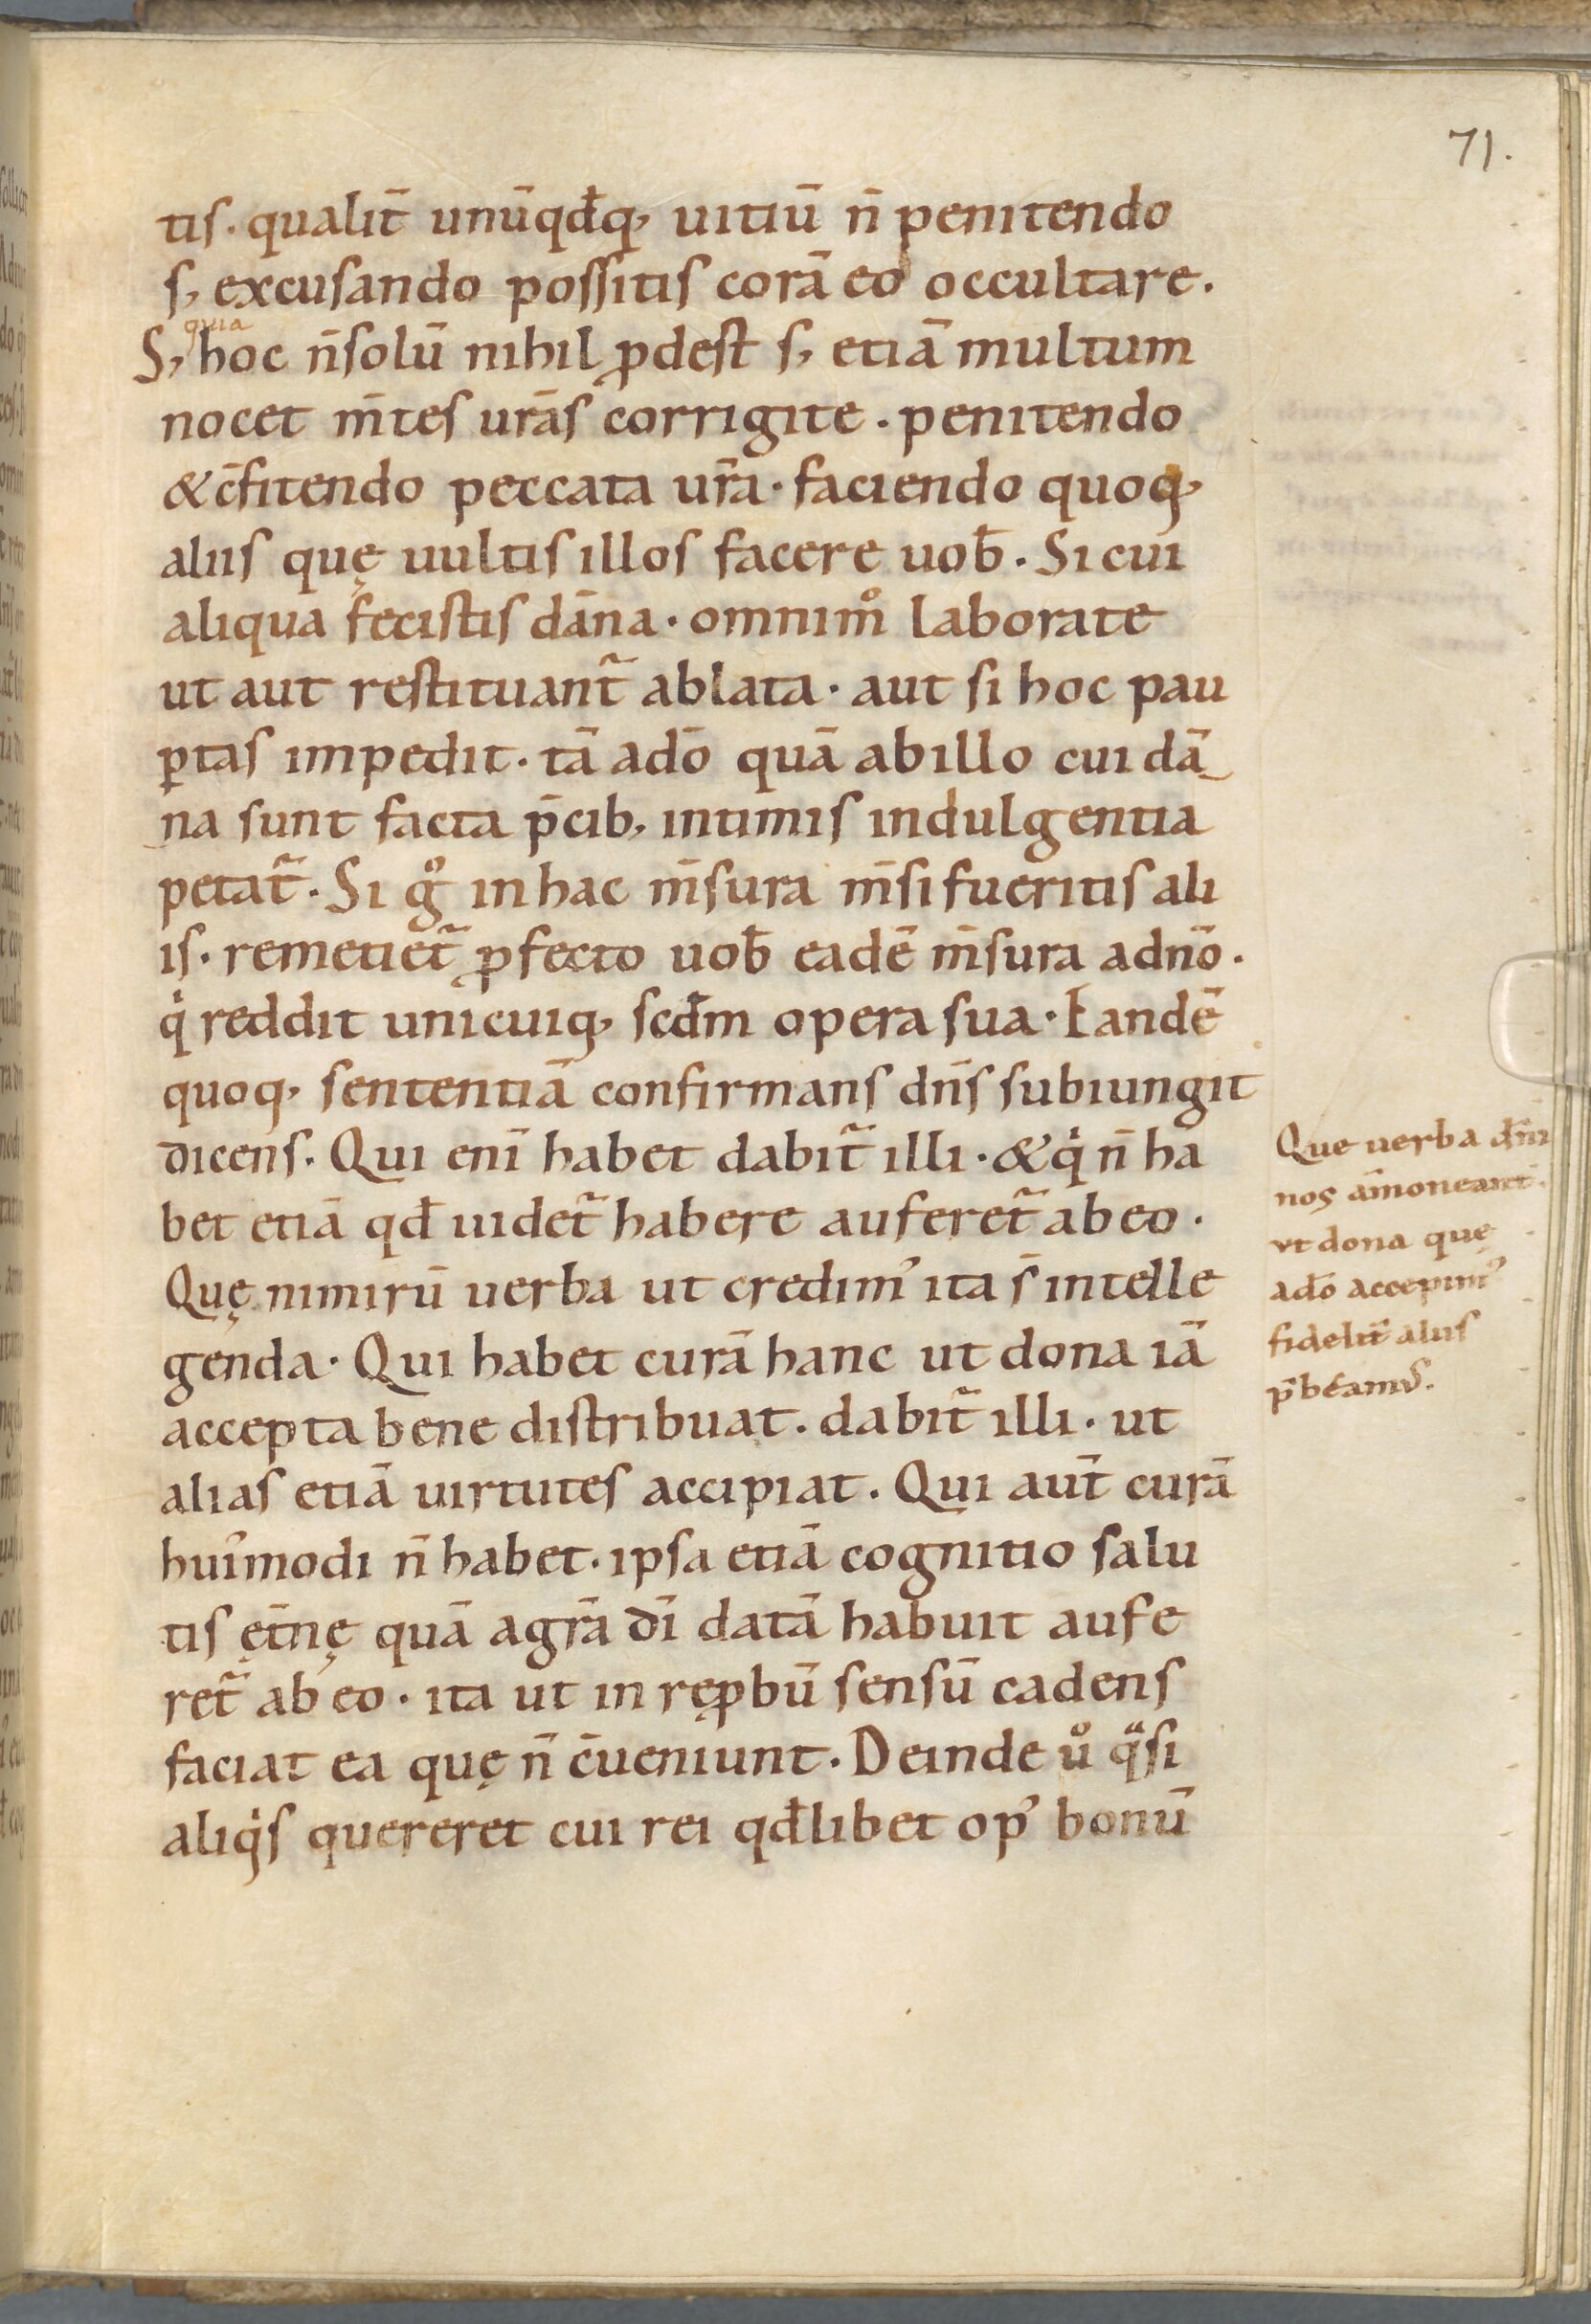 71.
tis. qualit̄ unūqđq, uitiū n̄ penitendo
s, excusando possitis corā eo occultare.
quia
S, hoc n̄ solū nihil ꝓdest s, etiā multum
nocet m̄tes ur̄as corrigite. penitendo
& c̄fitendo peccata ur̄a. faciendo quoq,
aliis quę uultis illos facere uob̄. Si cui
aliqua fecistis dāna. omnimͦ laborate
ut aut restituant᷒ ablata. aut si hoc pau
ꝑtas impedit. tā ad dō quā ab illo cui dā
na sunt facta p̄cib, intimis indulgentia
petat᷒. Si gͦ in hac m̄sura m̄si fueritis ali
is. remetiet᷒ ꝓfecto uob̄ eadē m̄sura a dn̄o.
qͥ reddit unicuiq, scđm opera sua. Eandē
quoq, sententiā confirmans dn̄s subiungit
dicens. Qui enī habet dabit᷒ illi. & qͥ n̄ ha
bet etiā qđ uidet᷒ habere auferet᷒ ab eo.
Quę nimirū uerba ut credimꝰ ita s̄ intelle
genda. Qui habet curā hanc ut dona iā
accepta bene distribuat. dabit᷒ illi. ut
alias etiā uirtutes accipiat. Qui aut̄ curā
huiꝰmodi n̄ habet. ipsa etiā cognitio salu
tis ęt̄nę quā a gr̄a dī datā habuit aufe
ret᷒ ab eo. ita ut in ręꝓbū sensū cadens
faciat ea quę n̄ c̄ueniunt. Deinde uͦ qͣsi
aliqͥs quereret cui rei qđlibet opꝰ bonū
Que uerba dn̄i
nos āmoneant.
vt dona quę
a dō accepimꝰ
fidelit̄ aliis
p̄beamꝰ.